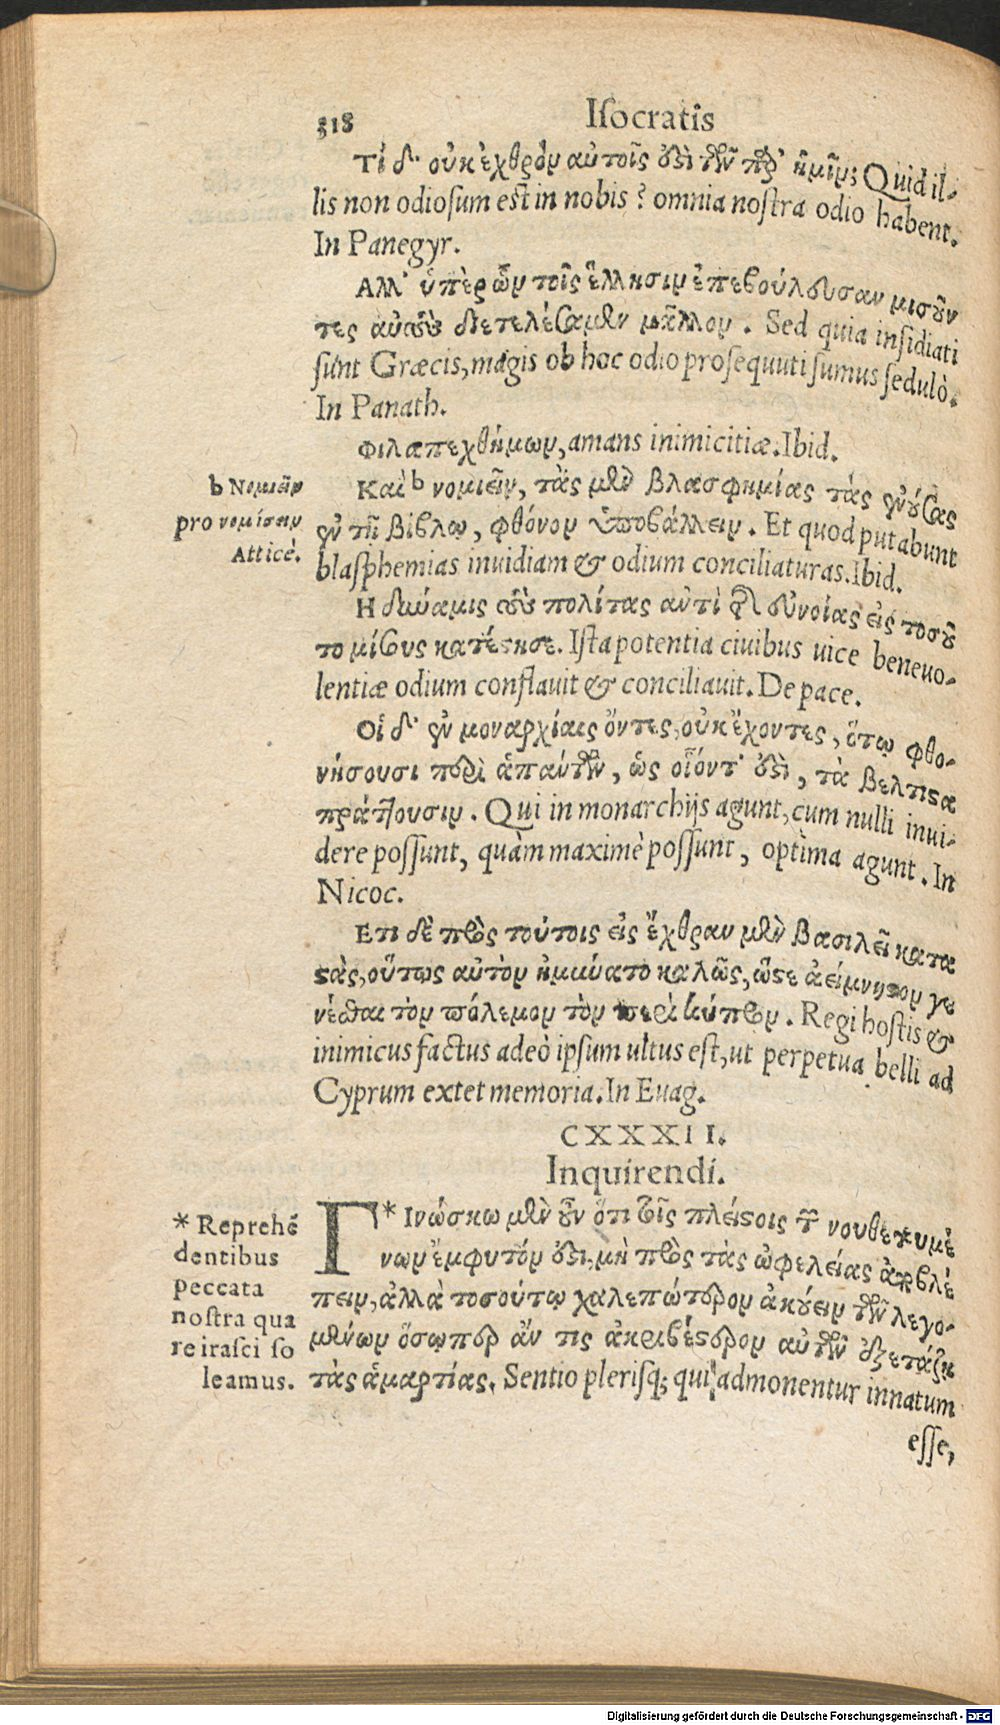 318 Isocratis
Τί δ' οὐκ ἐχθρὸν αὐτοῖς ἐστὶ τῶν παρ' ἡμῖν; Quid il-
lis non odiosum est in nobis? omnia nostra odio habent.
In Panegyr.
Αλλ' ὑπὲρ ὧν τοῖς ἕλλησιν ἐπεβούλευσαν μισοῦν
τες αὐτοὺς διετελέσαμεν μᾶλλον. Sed quia insidiati
sunt Græcis, magis ob hoc odio prosequuti sumus sedulò.
In Panath.
Φιλαπεχθήμων, amans inimicitiæ. Ibid.
b Νομιεῖν
pro νομίσειν
Atticè.
Καὶ b νομιεῖν, τὰς μὲν βλασφημίας τὰς ἐνούσας
ἐν τῇ βίβλῳ, φθόνον ὑποβάλλειν. Et quod putabunt
blasphemias inuidiam & odium conciliaturas. Ibid.
Η δύναμις τοὺς πολίτας αὐτὶ τῆς εὐνοίας εἰς τοσοῦ
το μίσους κατέστησε. Ista potentia ciuibus uice beneuo-
lentiæ odium conflauit & conciliauit. De pace.
Οἱ δ' ἐν μοναρχίαις ὄντες, οὐκ ἔχοντες, ὅτῳ φθο-
νήσουσι περὶ ἁπάντων, ὡς οἷόντ' ἐστὶ, τὰ βελτιστα
πράττουσιν. Qui in monarchijs agunt, cum nulli inui-
dere possunt, quàm maximè possunt, optima agunt. In
Nicoc.
Ετι δὲ πρὸς τούτοις εἰς ἔχθραν μὲν βασιλεῖ κατα
στὰς, οὕτως αὐτὸν ἠμύνατο καλῶς, ὥστε ἀείμνηστον γε
νέσθαι τὸν πόλεμον τὸν περὶ κύπρον. Regi hostis &
inimicus factus adeò ipsum ultus est, ut perpetua belli ad
Cyprum extet memoria. In Euag.
CXXXII.
Inquirendi.
* Reprehē
dentibus
peccata
nostra qua
re irasci so
leamus.
Γ*Ινώσκω μὲν οὖν ὅτι τοῖς πλείστοις τῶν νουθετουμέ
νων ἔμφυτόν ἐστι, μὴ πρὸς τὰς ὠφελείας ἀποβλέ
πειν, ἀλλὰ τοσούτῳ χαλεπώτερον ἀκούειν τῶν λεγο-
μένων ὅσῳπερ ἄν τις ἀκριβέστερον αὐτῶν ἐξετάζῃ
τὰς ἁμαρτίας. Sentio plerisq; qui admonentur innatum
esse,
Digitalisierung gefördert durch die Deutsche Forschungsgemeinschaft - DFG